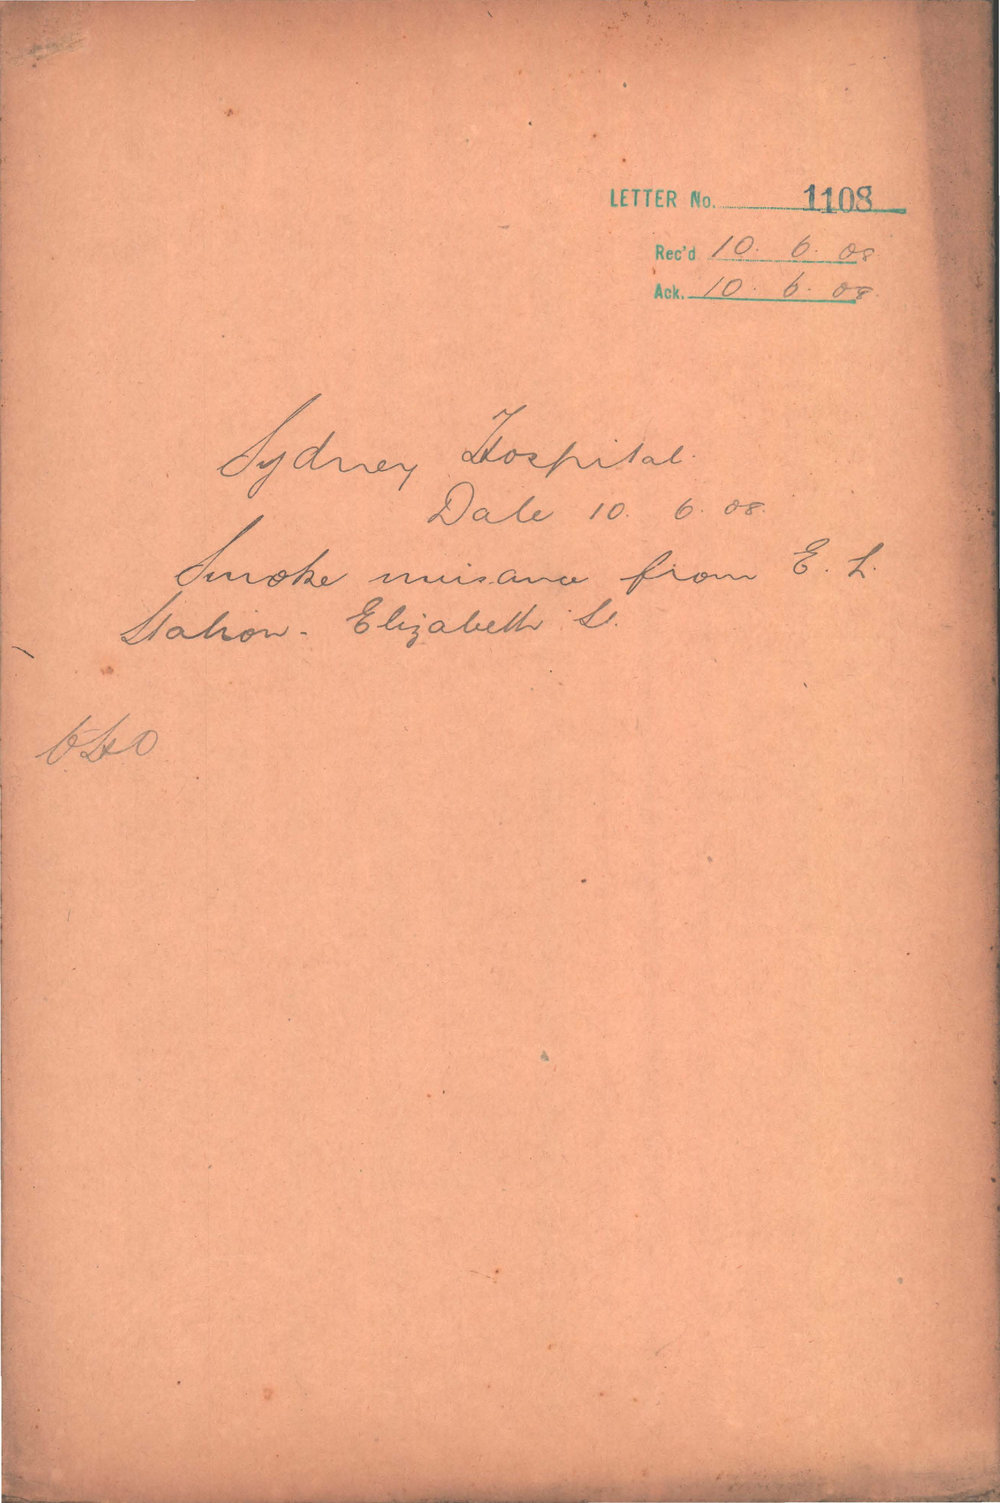 LETTER No. 1108
Rec'd 10. 6. 08
Ack. 10. 6. 08.
Sydney Hospital.
Date 10. 6. 08.
Smoke nuisance from E. L.
Station. Elizabeth St.